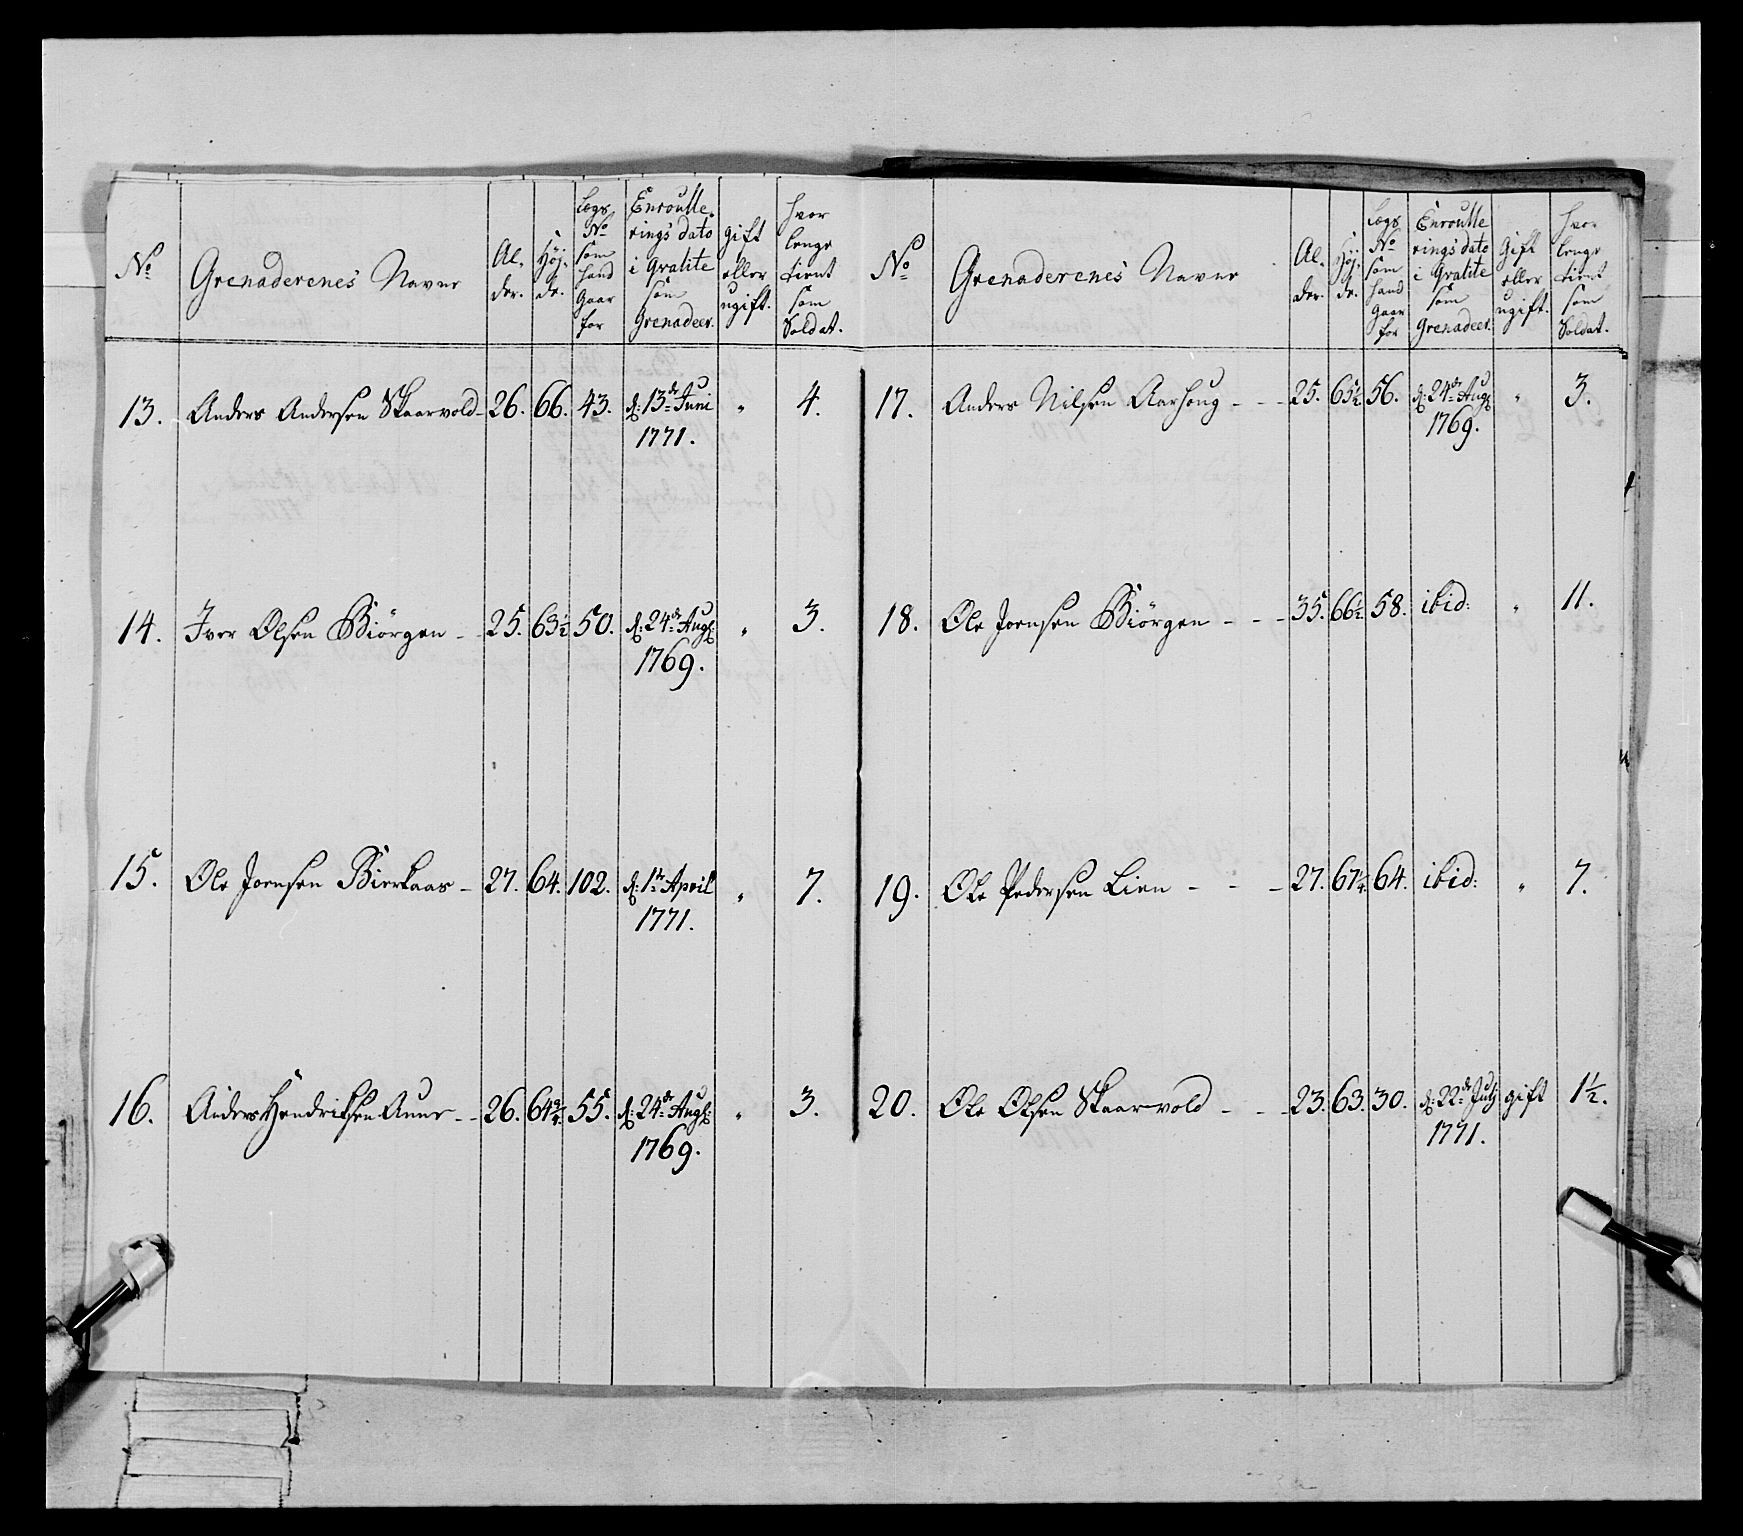 No
Grenaderenes Navne
Al-
der.
Høj-
de.
Lægs
No
som
hand
gaar
for
Enroulle-
rings dato
i qvalite
som
Grenadeer.
gift
eller
ugift.
hvor
lenge
tient
som
Soldat.
13. Anders Andersen Skaarvold - 26. 66. 43. d: 13de Juni " 4.
1771.
14. Iver Olsen Biörgen - 25. 63½ 50. d: 24de Aug: " 3.
1769.
15. Ole Joensen Bierkaas - 27. 64. 102. d: 1te April " 7.
1771.
16. Anders Hendriksen Aune - - 26. 64¾ 55. d: 24de Aug: " 3.
1769.
No
Grenaderenes Navne
Al-
der.
Høj-
de.
Lægs
No
som
hand
gaar
for
Enroulle
rings dato
i qvalite
som
Grenadeer.
Gift
eller
ugift.
hvor
lenge
tient
som
Soldat.
17. Anders Nilsen Aarhoug - - - 25. 65½ 56. d: 24de Aug: " 3.
1769.
18. Ole Joensen Biörgen - - - 35. 66½ 58. ibid: " 11.
19. Ole Pedersen Lien - - - 27. 67¼ 64. ibid: " 7.
20. Ole Olsen Skaarvold - - - 23. 63. 30. d: 22de Julj gift 1½.
1771.